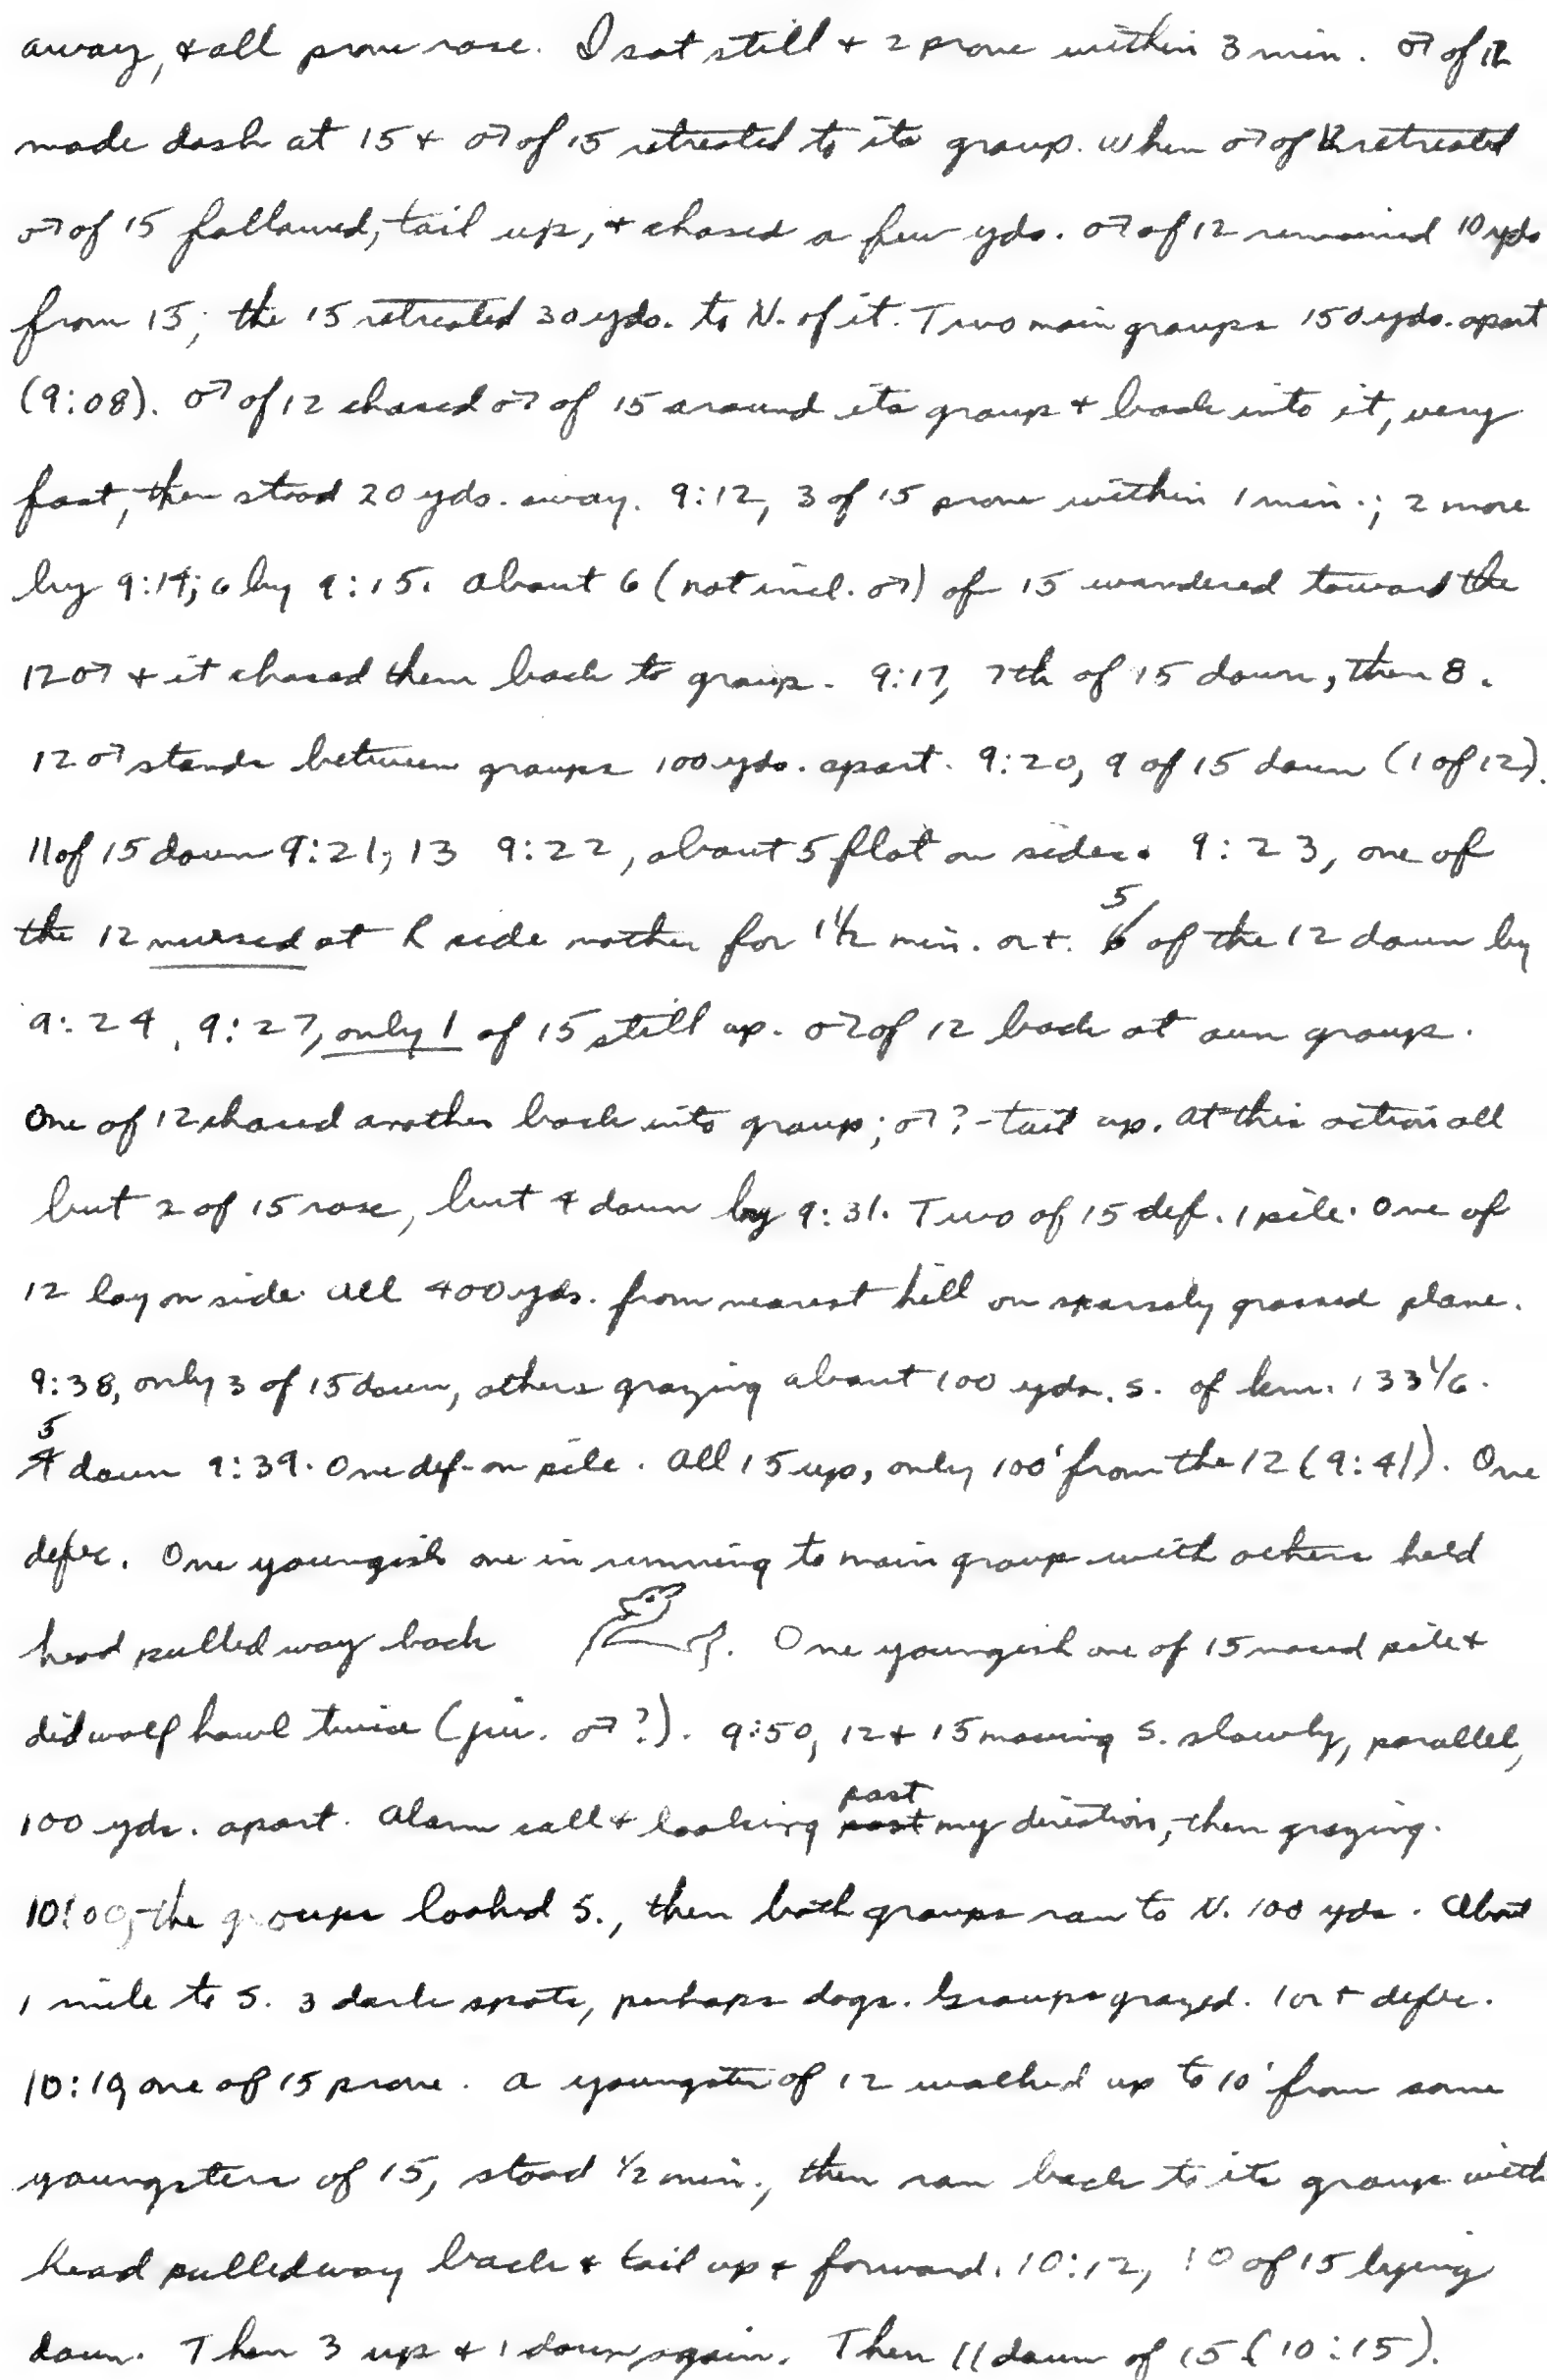 away, + all prone rose. I sat still + 2 prone within 3 min. ♂ of 12
made dash at 15 + ♂ of 15 retreated to its group. When ♂ of 12 retreated
♂ of 15 followed, tail up, + chased a few yds. ♂ of 12 remained 10 yds
from 15; the 15 retreated 30 yds. to N. of it. Two main groups 150 yds. apart
(9:08). ♂ of 12 chased ♂ of 15 around its group + back into it, very
fast, then stood 20 yds. away. 9:12, 3 of 15 prone within 1 min.; 2 more
by 9:14; 6 by 9:15. About 6 (not incl. ♂) of 15 wandered toward the
12 ♂ + it chased them back to group. 9:17, 7th of 15 down, then 8.
12 ♂ stands between groups 100 yds. apart. 9:20, 9 of 15 down (1 of 12).
11 of 15 down 9:21, 13 9:22, about 5 flat on sides. 9:23, one of
the 12 nursed at R side mother for 1 1/2 min. or +. 5 of the 12 down by
9:24, 9:27, only 1 of 15 still up. ♂ of 12 back at own group.
One of 12 chased another back into group; ♂? - tail up. At this action all
but 2 of 15 rose, but 4 down by 9:31. Two of 15 def. 1 pile. One of
12 lay on side. All 400 yds. from nearest hill on sparsely grassed plane.
9:38, only 3 of 15 down, others grazing about 100 yds. S. of km. 133 1/6.
5 down 9:39. One def. on pile. All 15 up, only 100' from the 12 (9:41). One
defec. One youngish one in running to main group with others held
head pulled way back. One youngish one of 15 nosed pile +
did wolf howl twice (juv. ♂?). 9:50, 12 + 15 moving S. slowly, parallel,
100 yds. apart. Alarm call + looking past my direction, then grazing.
10:00, the groups looked S., then both groups ran to N. 100 yds. About
1 mile to S. 3 dark spots, perhaps dogs. Groups grazed. 1 or + defec.
10:10 one of 15 prone. A youngster of 12 walked up to 10' from some
youngsters of 15, stood 1/2 min., then ran back to its group with
head pulled way back + tail up + forward. 10:12, 10 of 15 lying
down. Then 3 up + 1 down again. Then 11 down of 15 (10:15).